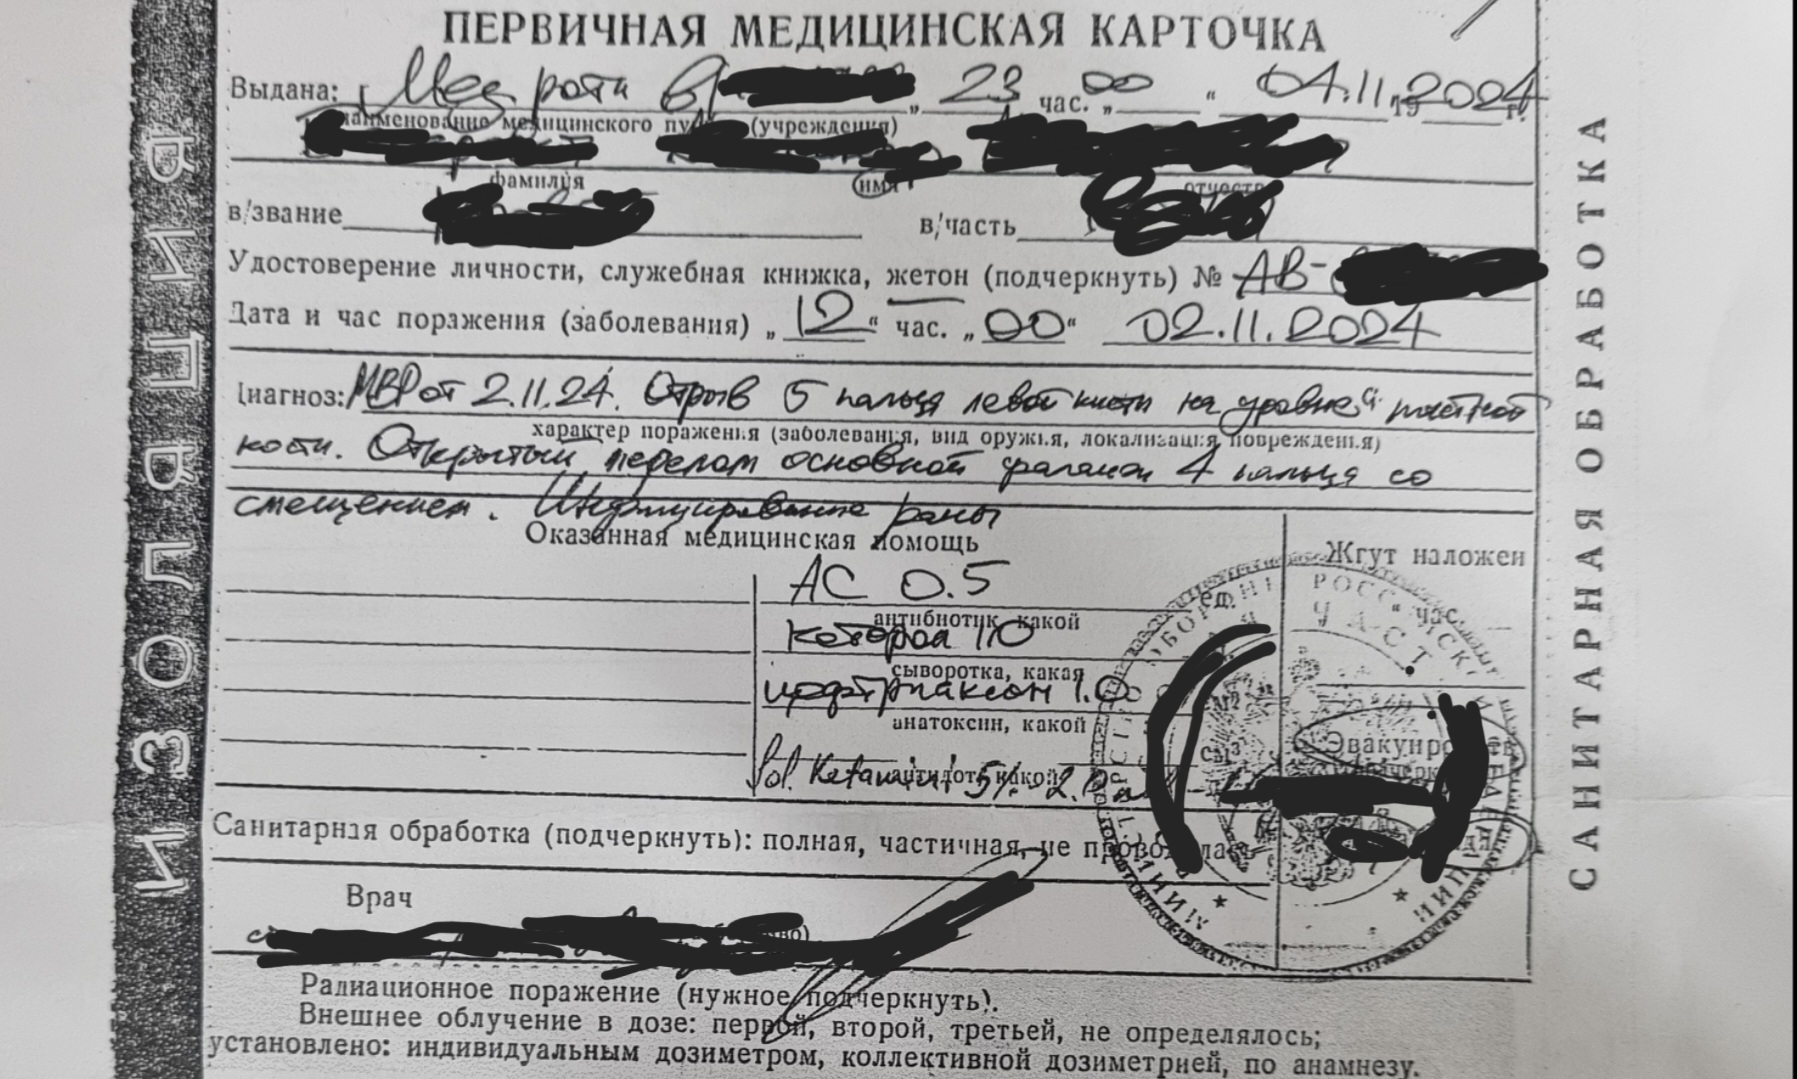 ПЕРВИЧНАЯ МЕДИЦИНСКАЯ КАРТОЧКА
Выдана: Мед роты „ 23 час. „ 00 “ 04.11. 19 2024 г.
наименование медицинского (учреждения)
фамилия имя
в/звание в/часть
Удостоверение личности, служебная книжка, жетон (подчеркнуть) № АВ-
Дата и час поражения (заболевания) „ 12 “ час. „ 00 “ 02.11.2024
Диагноз: МВР от 2.11.24. Отрыв 5 пальца левой кисти на уровне пястной
характер поражения (заболевания, вид оружия, локализация повреждения)
кости. Открытый перелом основной фаланги 4 пальца со
смещением. Инфицирование раны
Оказанная медицинская помощь
Жгут наложен
АС 0.5 ед.
антибиотик какой
час
Кеторол 1.0
сыворотка, какая
цефтриаксон 1.0
анатоксин, какой
Sol. Ketamini 5% 2.0
Санитарная обработка (подчеркнуть): полная, частичная, не проводилась
Врач
Радиационное поражение (нужное подчеркнуть).
Внешнее облучение в дозе: первой, второй, третьей, не определялось;
установлено: индивидуальным дозиметром, коллективной дозиметрией, по анамнезу.
ИЗОЛЯЦИЯ
САНИТАРНАЯ ОБРАБОТКА